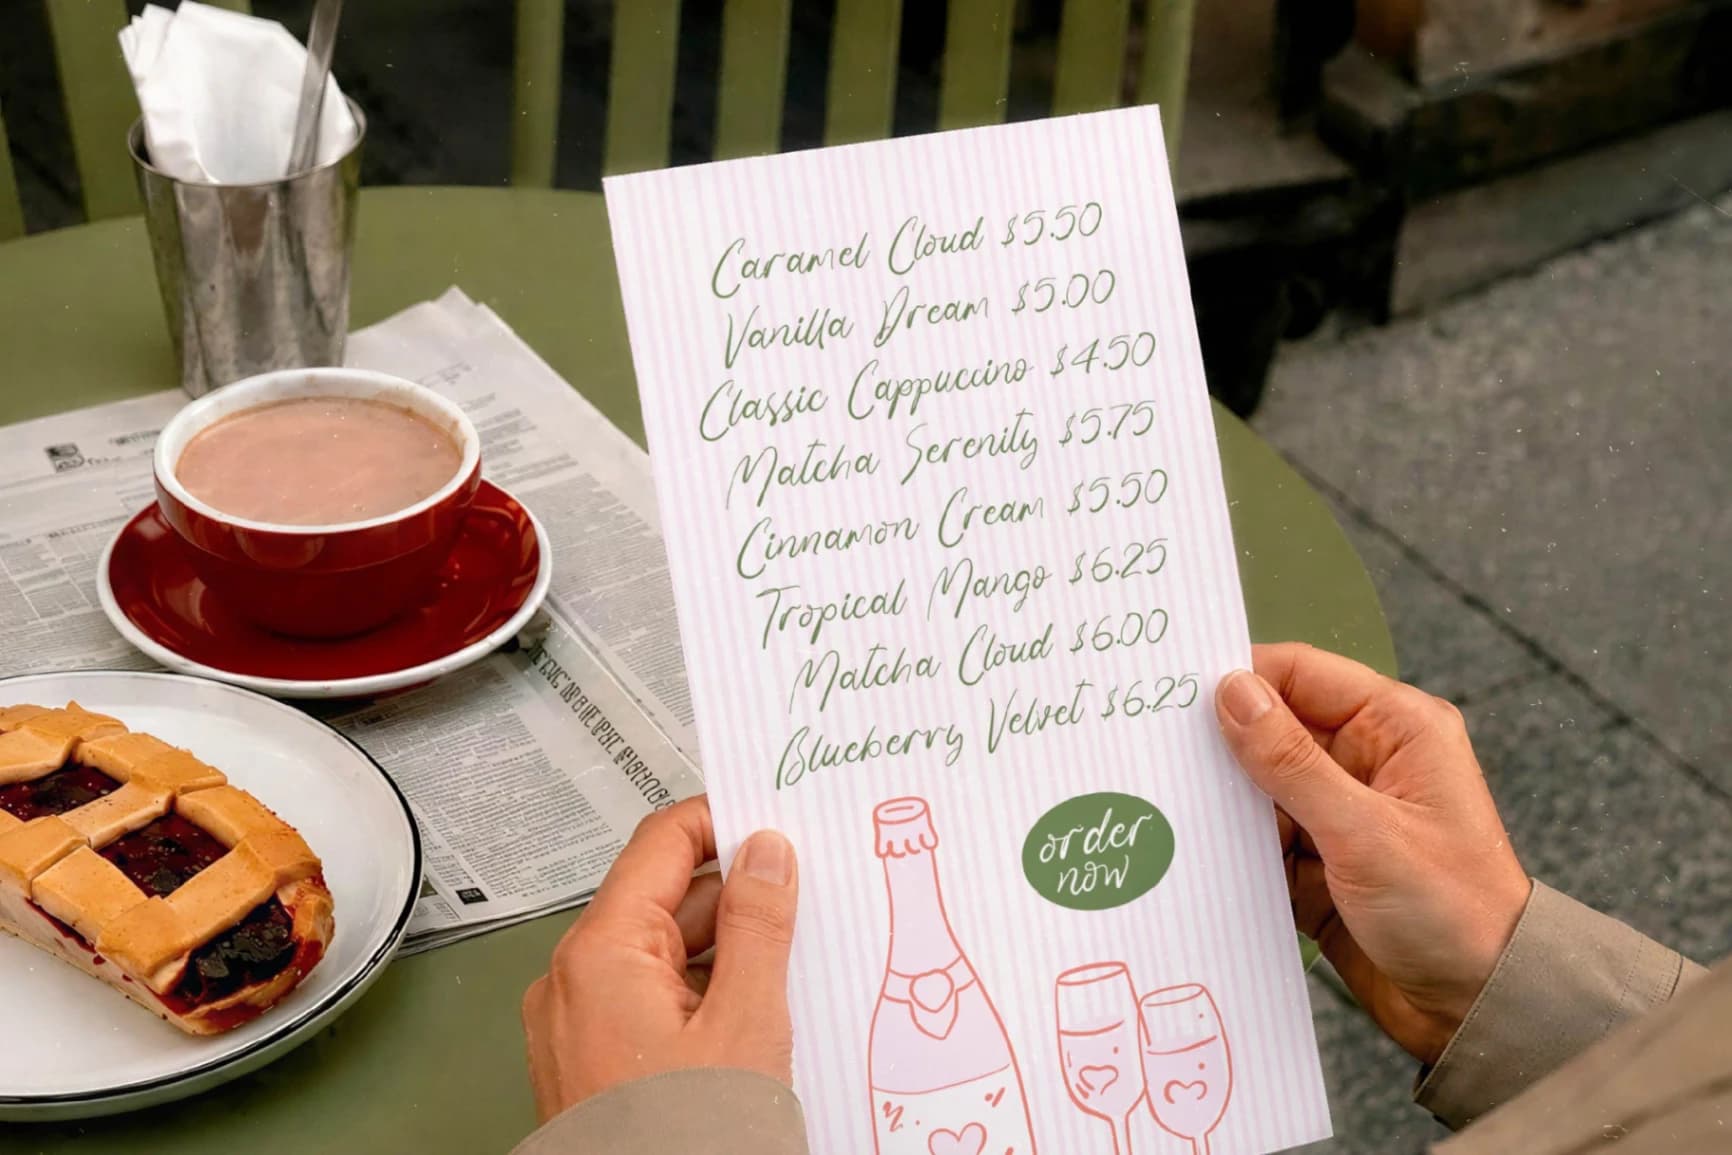 Caramel Cloud $5.50
Vanilla Dream $5.00
Classic Cappuccino $4.50
Matcha Serenity $5.75
Cinnamon Cream $5.50
Tropical Mango $6.25
Matcha Cloud $6.00
Blueberry Velvet $6.25
order
now